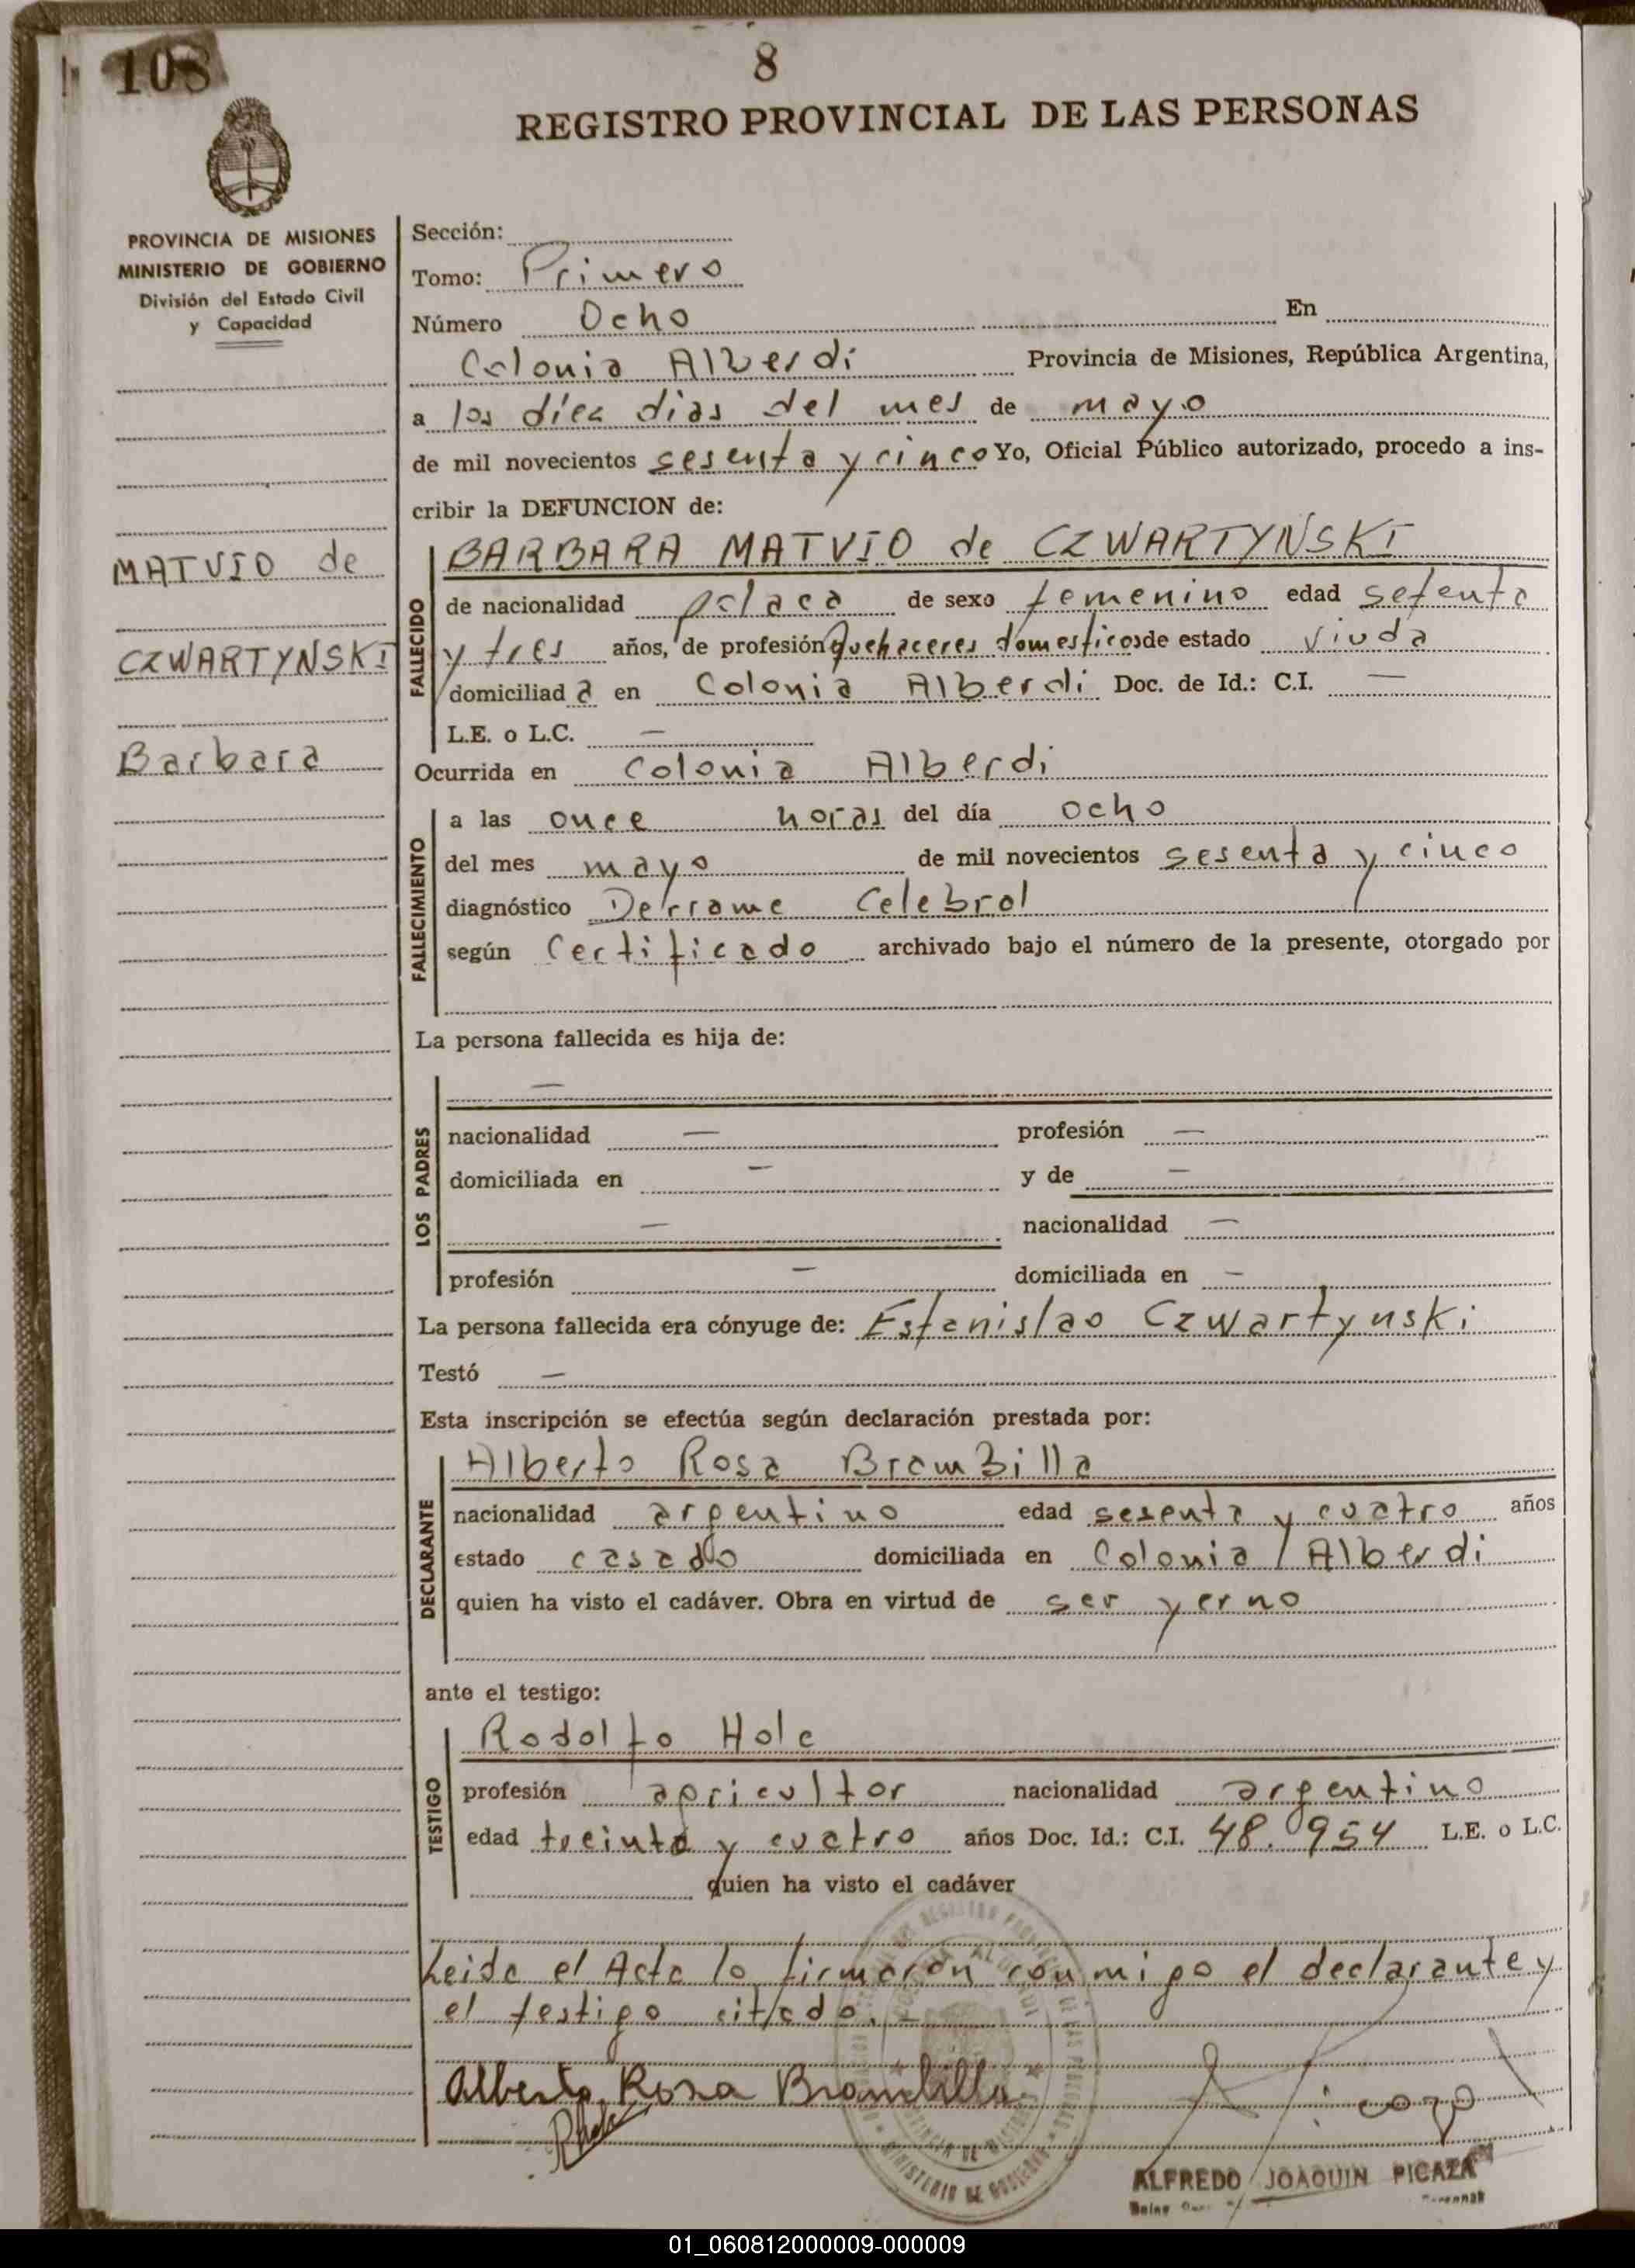 108
8
REGISTRO PROVINCIAL DE LAS PERSONAS
PROVINCIA DE MISIONES
MINISTERIO DE GOBIERNO
División del Estado Civil
y Capacidad
MATVIO de
CZWARTYNSKI
Barbara
Sección:
Tomo: Primero
Número Ocho En
Colonia Alberdi Provincia de Misiones, República Argentina,
a los diez dias del mes de mayo
de mil novecientos sesenta y cinco Yo, Oficial Público autorizado, procedo a ins-
cribir la DEFUNCION de:
FALLECIDO
BARBARA MATVIO de CZWARTYNSKI
de nacionalidad polaca de sexo femenino edad setenta
y tres años, de profesión Quehaceres domesticos de estado viuda
domiciliad a en Colonia Alberdi Doc. de Id.: C.I. —
L.E. o L.C. —
Ocurrida en Colonia Alberdi
FALLECIMIENTO
a las once horas del día ocho
del mes mayo de mil novecientos sesenta y cinco
diagnóstico Derrame Celebrol
según Certificado archivado bajo el número de la presente, otorgado por
La persona fallecida es hija de:
LOS PADRES
—
nacionalidad — profesión —
domiciliada en — y de —
— nacionalidad —
profesión — domiciliada en —
La persona fallecida era cónyuge de: Estanislao Czwartynski
Testó —
Esta inscripción se efectúa según declaración prestada por:
DECLARANTE
Alberto Rosa Brambilla
nacionalidad argentino edad sesenta y cuatro años
estado casado domiciliada en Colonia Alberdi
quien ha visto el cadáver. Obra en virtud de ser yerno
ante el testigo:
TESTIGO
Rodolfo Hole
profesión agricultor nacionalidad argentino
edad treinta y cuatro años Doc. Id.: C.I. 48.954 L.E. o L.C.
quien ha visto el cadáver
Leida el Acta lo firmaron conmigo el declarante y
el testigo citado.
Alberto Rosa Brambilla
ALFREDO JOAQUIN PICAZA
01_060812000009-000009